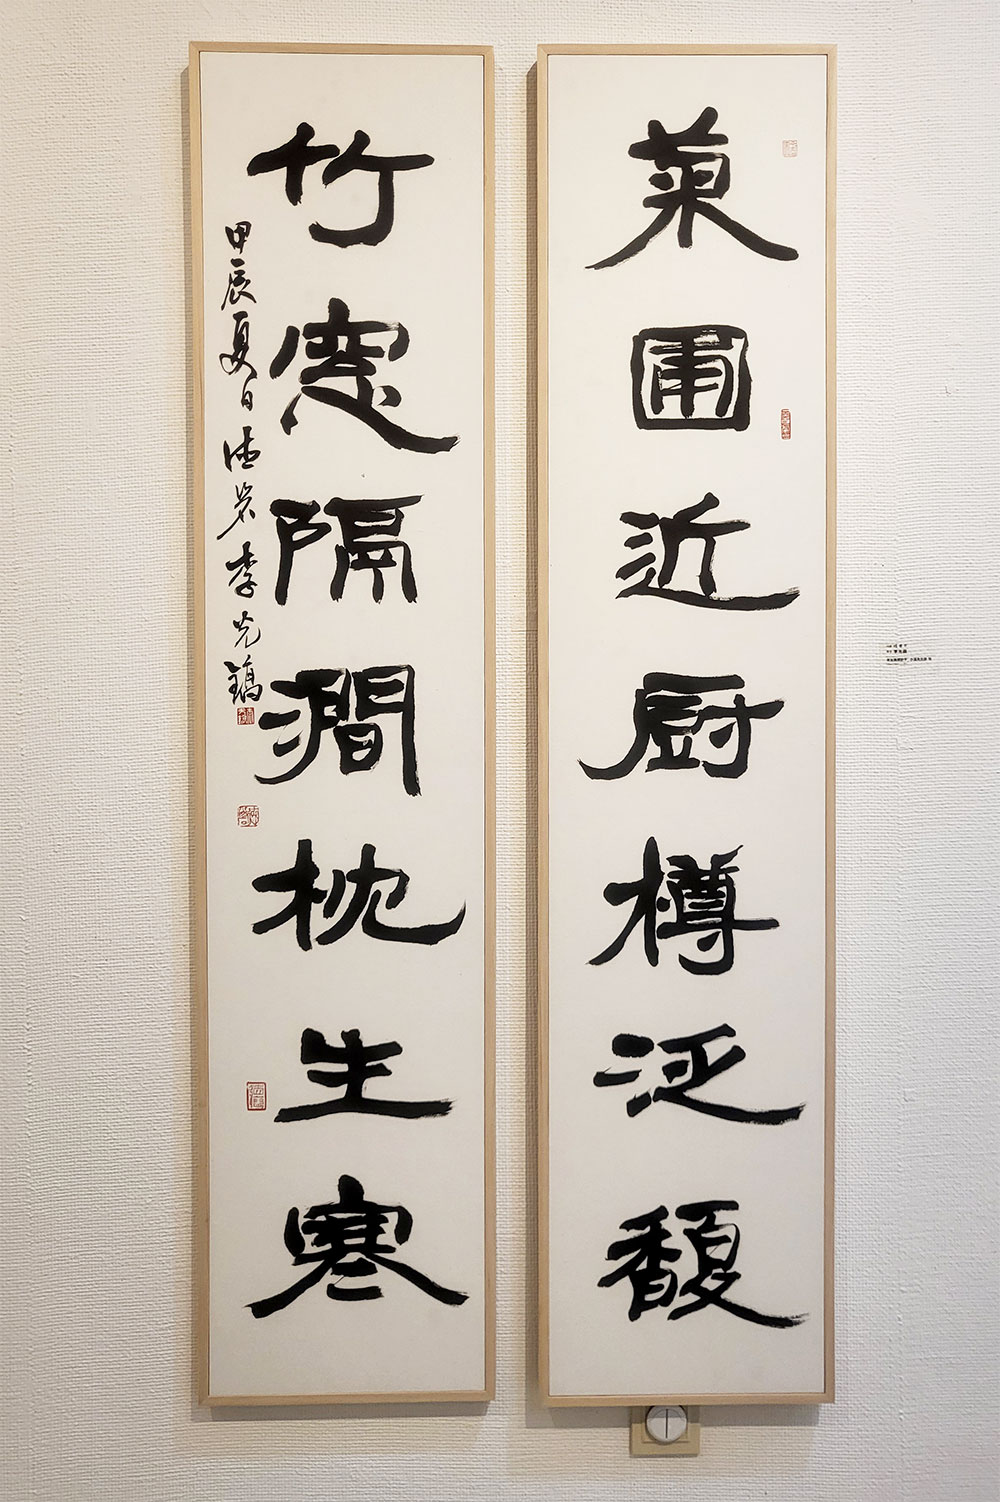 菜圃近厨樽泛馥
竹窓隔澗枕生寒
甲辰夏日德岩李光鎬